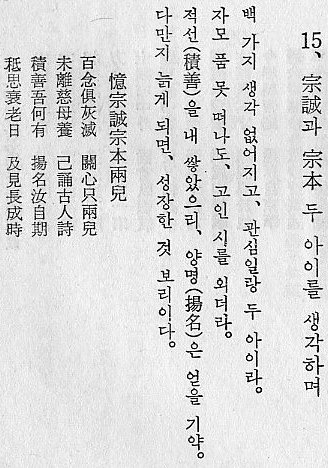 15、宗誠과 宗本 두 아이를 생각하며
백 가지 생각 없어지고、관심일랑 두 아이라。
자모 품 못 떠나도、고인 시를 외더라。
적선(積善)을 내 쌓았으리、양명(揚名)은 얻을 기약。
다만지 늙게 되면、성장한 것 보리이다。
憶宗誠宗本兩兒
百念俱灰滅 關心只兩兒
未離慈母養 己誦古人詩
積善吾何有 揚名汝自期
秪思衰老日 及見長成時